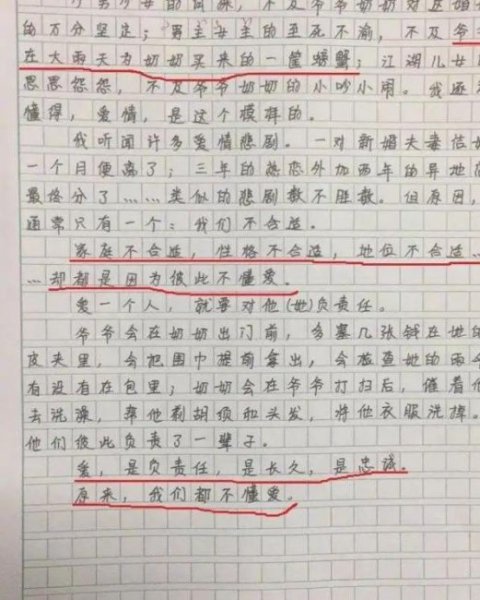 的万分坚定；男主女主的至死不渝，不及爷
在大雨天为奶奶买来的一筐螃蟹；江湖儿女
恩恩怨怨，不及爷爷奶奶的小吵小闹。我逐
懂得，爱情，是这个模样的。
我听闻许多爱情悲剧。一对新婚夫妻结婚
一个月便离了；三年的热恋外加两年的异地恋
最终分了……类似的悲剧数不胜数。但原因，
通常只有一个：我们不合适。
家庭不合适，性格不合适，地位不合适…
…却都是因为彼此不懂爱。
爱一个人，就要对他(她)负责任。
爷爷会在奶奶出门前，多塞几张钱在她的
皮夹里，会把围巾提前拿出，会检查她的雨伞
有没有在包里；奶奶会在爷爷打扫后，催着他
去洗澡，帮他剃胡须和头发，将他衣服洗掉。
他们彼此负责了一辈子。
爱，是负责任，是长久，是忠诚。
原来，我们都不懂爱。